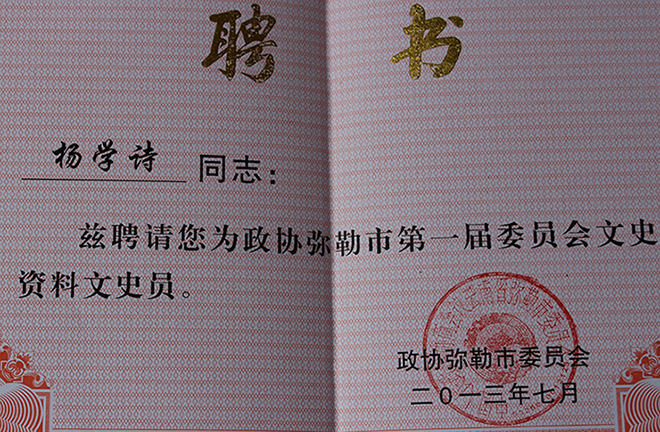 聘书
杨学诗 同志：
兹聘请您为政协弥勒市第一届委员会文史
资料文史员。
政协弥勒市委员会
二〇一三年七月